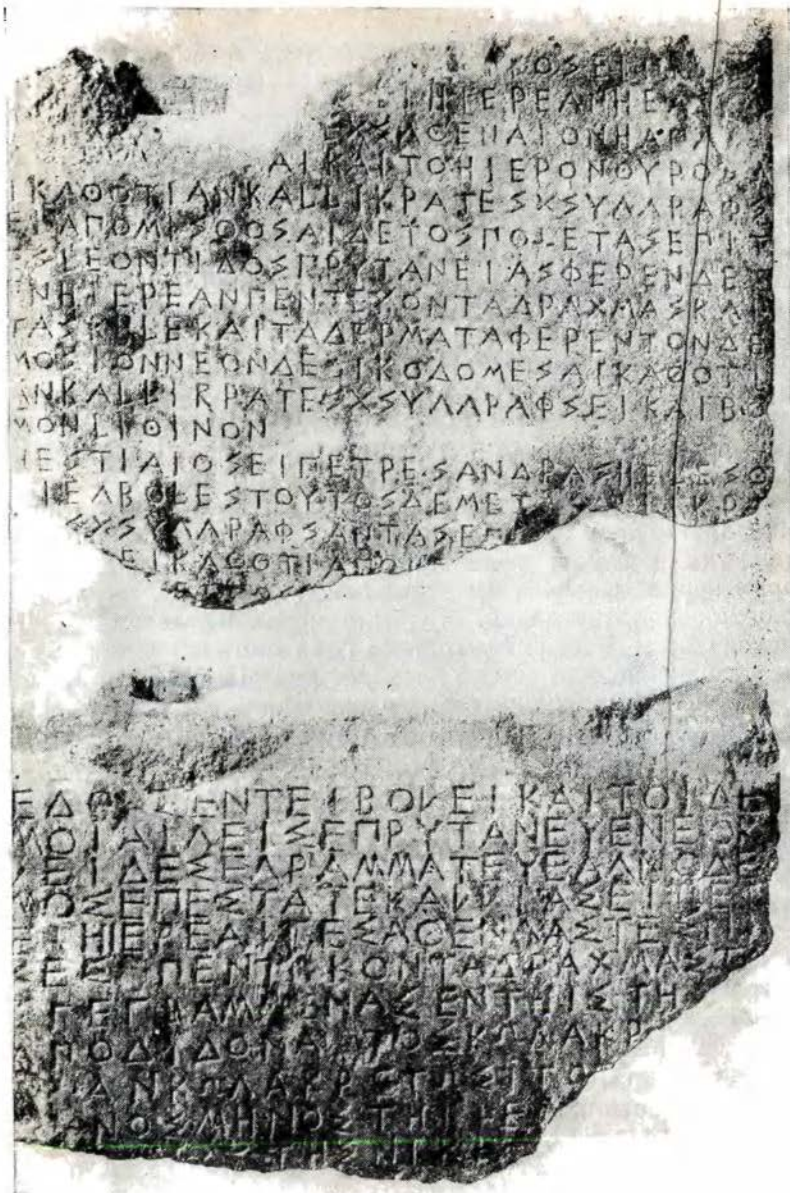 ΚΟΣΕΙΠ
ΙΗΙΕΡΕΑΝΗΕΑ
ΕΧΣΑΘΕΝΑΙΟΝΗΑΠΑ
ΑΙΚΑΙΤΟΗΙΕΡΟΝΘΥΡΟΣΑ
ΙΚΑΘΟΤΙΑΝΚΑΛΛΙΚΡΑΤΕΣΧΣΥΓΓΡΑΦΣ
ΕΙΑΠΟΜΙΣΘΟΣΑΙΔΕΤΟΣΠΟΛΕΤΑΣΕΠΙΤ
ΕΣΛΕΟΝΤΙΔΟΣΠΡΥΤΑΝΕΙΑΣΦΕΡΕΝΔΕΤ
ΕΝΗΙΕΡΕΑΝΠΕΝΤΕΚΟΝΤΑΔΡΑΧΜΑΣΚΑΙ
ΤΑΣΚΕΛΕΚΑΙΤΑΔΕΡΜΑΤΑΦΕΡΕΝΤΟΝΔΕ
ΜΟΣΙΟΝΝΕΟΝΔΕΟΙΚΟΔΟΜΕΣΑΙΚΑΘΟΤΙ
ΑΝΚΑΛΛΙΚΡΑΤΕΣΧΣΥΓΓΡΑΦΣΕΙΚΑΙΒΟ
ΜΟΝΛΙΘΙΝΟΝ
ΗΕΣΤΙΑΙΟΣΕΙΠΕΤΡΕΣΑΝΔΡΑΣΗΕΛΕΣΘ
ΙΕΓΒΟΛΕΣΤΟΥΤΟΣΔΕΜΕΤ ΛΙΚΡ
ΧΣΥΓΓΡΑΦΣΑΝΤΑΣΕΠ
ΕΙΚΑΘΟΤΙΑΠΟΜ
ΕΔΟΧΣΕΝΤΕΙΒΟΛΕΙΚΑΙΤΟΙΔΕ
ΜΟΙΑΙΓΕΙΣΕΠΡΥΤΑΝΕΥΕΝΕΟΚ
ΛΕΙΔΕΣΕΓΡΑΜΜΑΤΕΥΕΑΓΝΟΔΕ
ΜΟΣΕΠΕΣΤΑΤΕΚΑΛΛΙΑΣΕΙΠΕΤ
ΕΙΗΙΕΡΕΑΙΤΕΣΑΘΕΝΑΑΣΤΕΣΝΙ
ΚΕΣΠΕΝΤΕΚΟΝΤΑΔΡΑΧΜΑΣΤΑ
ΓΕΓΡΑΜΜΕΝΑΣΕΝΤΗΙΣΤΗ
ΑΠΟΔΙΔΟΝΑΙΤΟΣΚΩΛΑΚΡ
ΙΑΝΚΩΛΑΚΡΕΤΩΣΙΤΟ
ΩΝΟΣΜΗΝΟΣΤΗΙΙΕ
ΤΗΣΝΙΚΗ